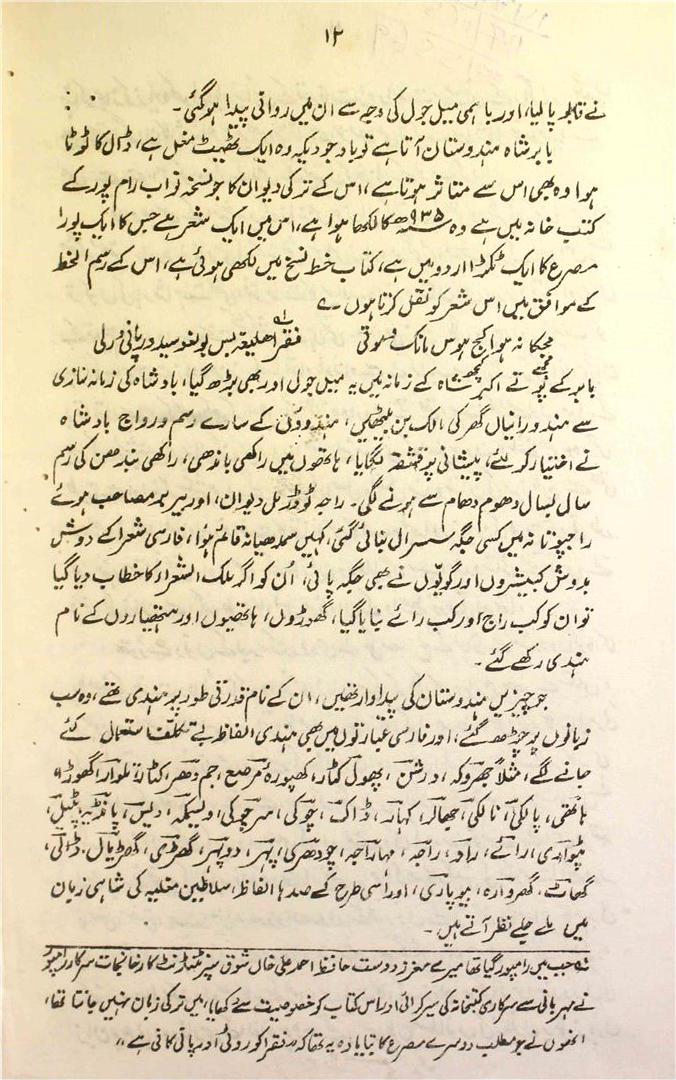 ۱۲
نے قابو پا لیا، اور باہمی میل جول کی وجہ سے ان میں روانی پیدا ہوگئی۔
بابر شاہ ہندوستان آتا ہے تو باوجودیکہ وہ ایک ٹھیٹ مغل ہے، ڈال کا ٹوٹا
ہوا وہ بھی اس سے متاثر ہوتا ہے، اس کے ترکی دیوان کا جو نسخہ نواب رام پور کے
کتب خانہ میں ہے وہ ۹۳۵ھ کا لکھا ہوا ہے، اس میں ایک شعر ہے جس کا ایک پورا
مصرع کا ایک ٹکڑا اردو میں ہے، کتاب خط نسخ میں لکھی ہوئی ہے، اس کے رسم الخط
کے موافق میں اس شعر کو نقل کرتا ہوں۔
مجکا نہ ہوا کج ہوس مانک و موتی فقرا اھلیغہ بس بولغوسیدور پانی و رلی
بابر کے پوتے اکبر شاہ کے زمانہ میں یہ میل جول اور بھی بڑھ گیا، بادشاہ کی زمانہ سازی
سے ہندو رانیاں گھر کی مالک بن بیٹھیں، ہندوؤں کے سارے رسم و رواج بادشاہ
نے اختیار کر لئے، پیشانی پر قشقہ لگایا، ہاتھوں میں راکھی باندھی، راکھی بندھن کی رسم
سال بسال دھوم دھام سے ہونے لگی۔ راجہ ٹوڈرمل دیوان، اور بیربر مصاحب ہوئے
راجپوتانہ میں کسی جگہ سسرال بنائی گئی، کہیں سمدھیانہ قائم ہوا، فارسی شعرا کے دوش
بدوش کبیشروں اور گویوں نے بھی جگہ پائی، اُن کو اگر ملک الشعرا کا خطاب دیا گیا
تو ان کو کب راج اور کب رائے بنایا گیا، گھوڑوں، ہاتھیوں اور ہتھیاروں کے نام
ہندی رکھے گئے۔
جو چیزیں ہندوستان کی پیداوار تھیں، ان کے نام قدرتی طور پر ہندی تھے، وہ سب
زبانوں پر چڑھ گئے، اور فارسی عبارتوں میں بھی ہندی الفاظ بے تکلف استعمال کئے
جانے لگے، مثلاً جھروکہ، درشن، پھول کٹار، کھپورہ مرصع، جم دھر، کٹارہ، تلوار، گھوڑہ
ہاتھی، پالکی، نالکی، جھالر، کہار، ڈاک، چوکی، سرچوکی، دیسمکھ، دیس، پانڈیہ، پٹیل،
پٹواری، رائے، راؤ، راجہ، مہاراجہ، چودھری، پہر، دوپہر، گھڑی، گھڑیال، ڈالی،
گھاٹ، گھروارہ، بیوپاری، اور اسی طرح کے صدہا الفاظ، سلاطین مغلیہ کی شاہی زبان
میں ملے جلے نظر آتے ہیں۔
لہ جب میں رامپور گیا تھا میرے معزز دوست حافظ احمد علی خاں شوق سپرنٹنڈنٹ کارخانجات سرکار رامپور
نے مہربانی سے سرکاری کتبخانہ کی سیر کرائی اور اس کتاب کو خصوصیت سے دکھایا، میں ترکی زبان نہیں جانتا تھا،
انھوں نے جو مطلب دوسرے مصرع کا بتایا وہ یہ تھا کہ ”فقرا کو روٹی اور پانی کافی ہے“